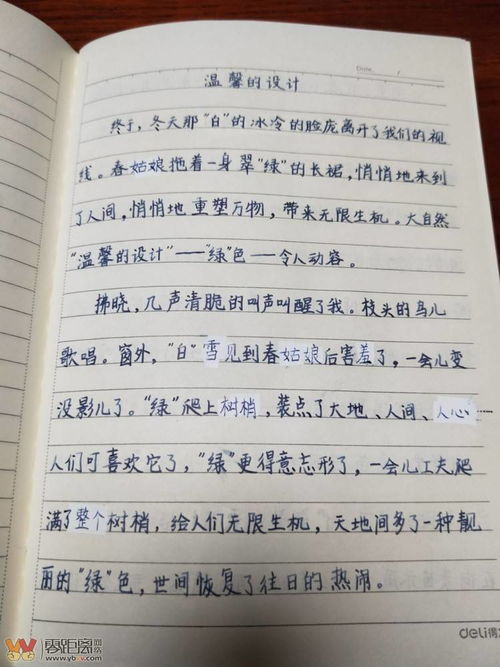 Date. /
温馨的设计
终于，冬天那"白"的冰冷的脸庞离开了我们的视
线。春姑娘拖着一身翠"绿"的长裙，悄悄地来到
了人间，悄悄地重塑万物，带来无限生机。大自然
"温馨的设计"——"绿"色——令人动容。
拂晓，几声清脆的叫声叫醒了我。枝头的鸟儿
歌唱。窗外，"白"雪见到春姑娘后害羞了，一会儿变
没影儿了。"绿"爬上树梢，装点了大地、人间、人心
人们可喜欢它了，"绿"更得意忘形了，一会儿工夫爬
满了整个树梢，给人们无限生机，天地间多了一种靓
丽的"绿"色，世间恢复了往日的热闹。
deli得
零距离网络
www.ybvv.com